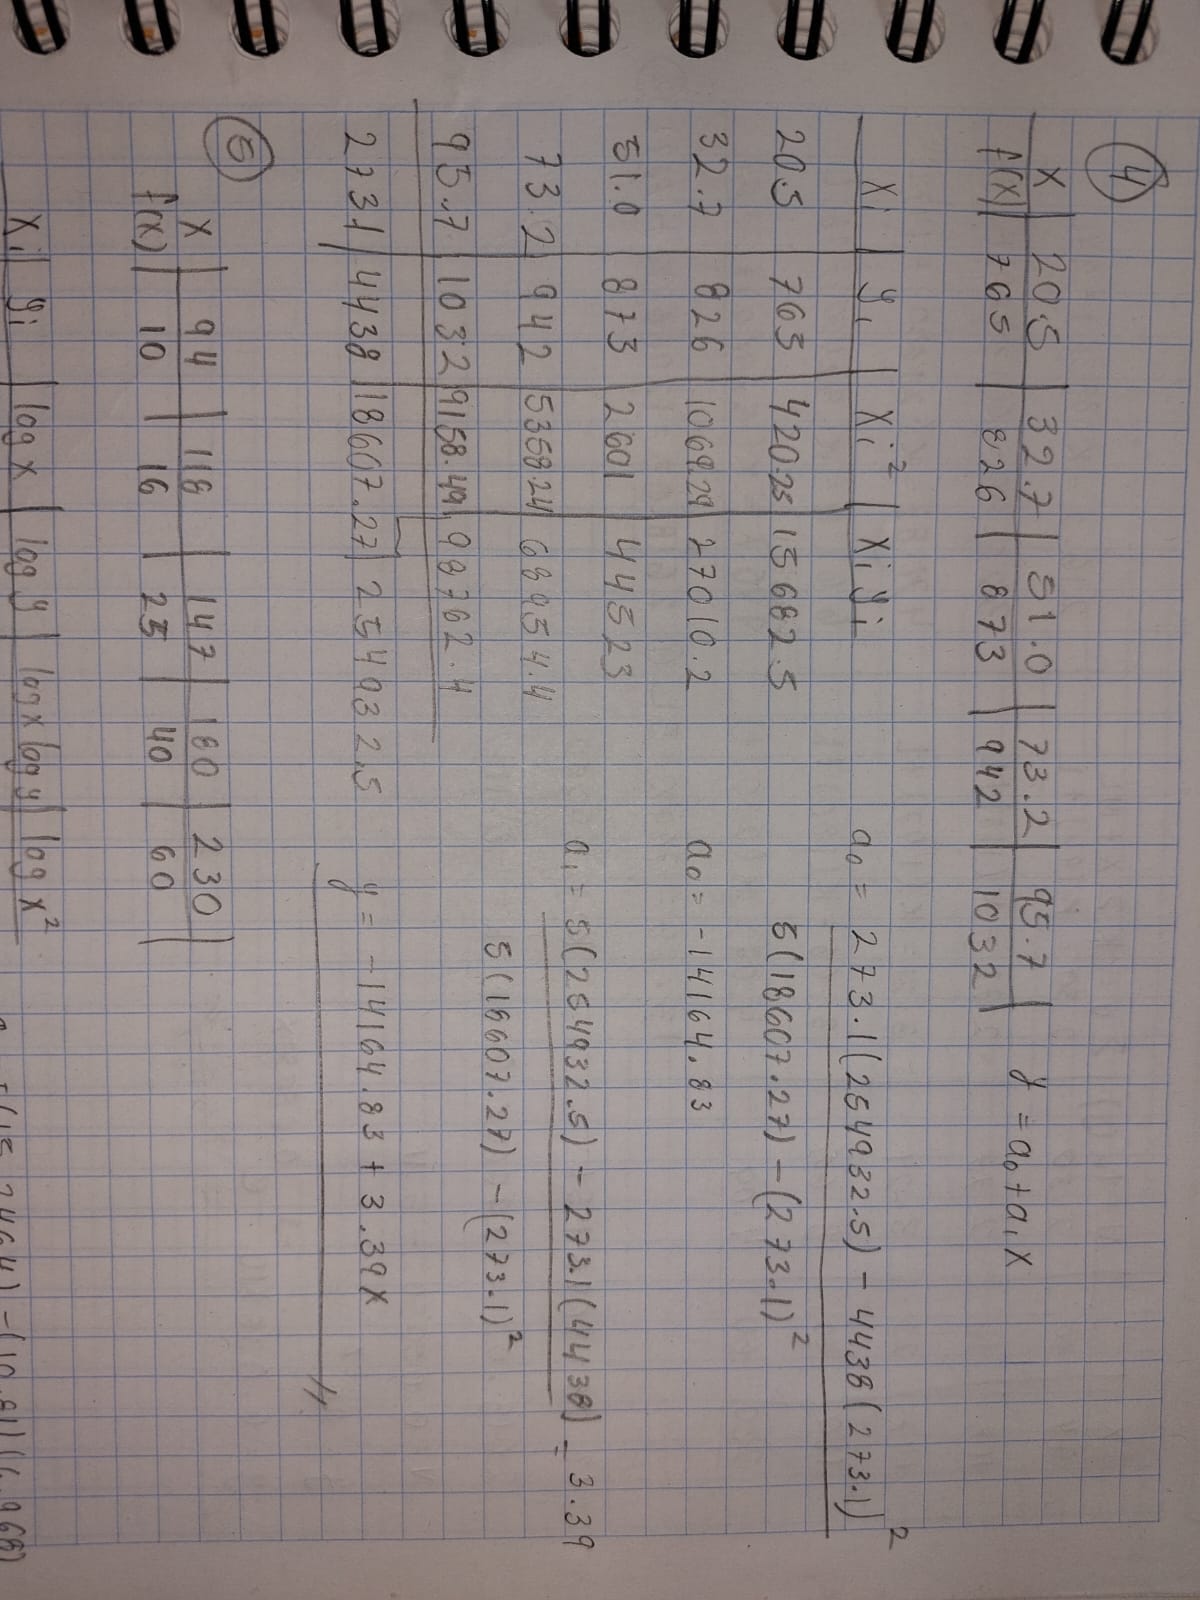 4
x | 20.5 | 32.7 | 51.0 | 73.2 | 95.7 |
f(x) | 765 | 826 | 873 | 942 | 1032 |
y = a0 + a1x
xi | yi | xi² | xi yi
20.5 | 765 | 420.25 | 15682.5
32.7 | 826 | 1069.29 | 27010.2
51.0 | 873 | 2601 | 44523
73.2 | 942 | 5358.24 | 68954.4
95.7 | 1032 | 9158.49 | 98762.4
273.1 | 4438 | 18607.27 | 254932.5
a0 = 273.1(254932.5) - 4438(273.1)²
5(18607.27) - (273.1)²
a0 = -14164.83
a1 = 5(254932.5) - 273.1(4438) = 3.39
5(18607.27) - (273.1)²
y = -14164.83 + 3.39x
5
x | 94 | 118 | 147 | 180 | 230 |
f(x) | 10 | 16 | 25 | 40 | 60 |
xi | yi | log x | log y | log x log y | log x²